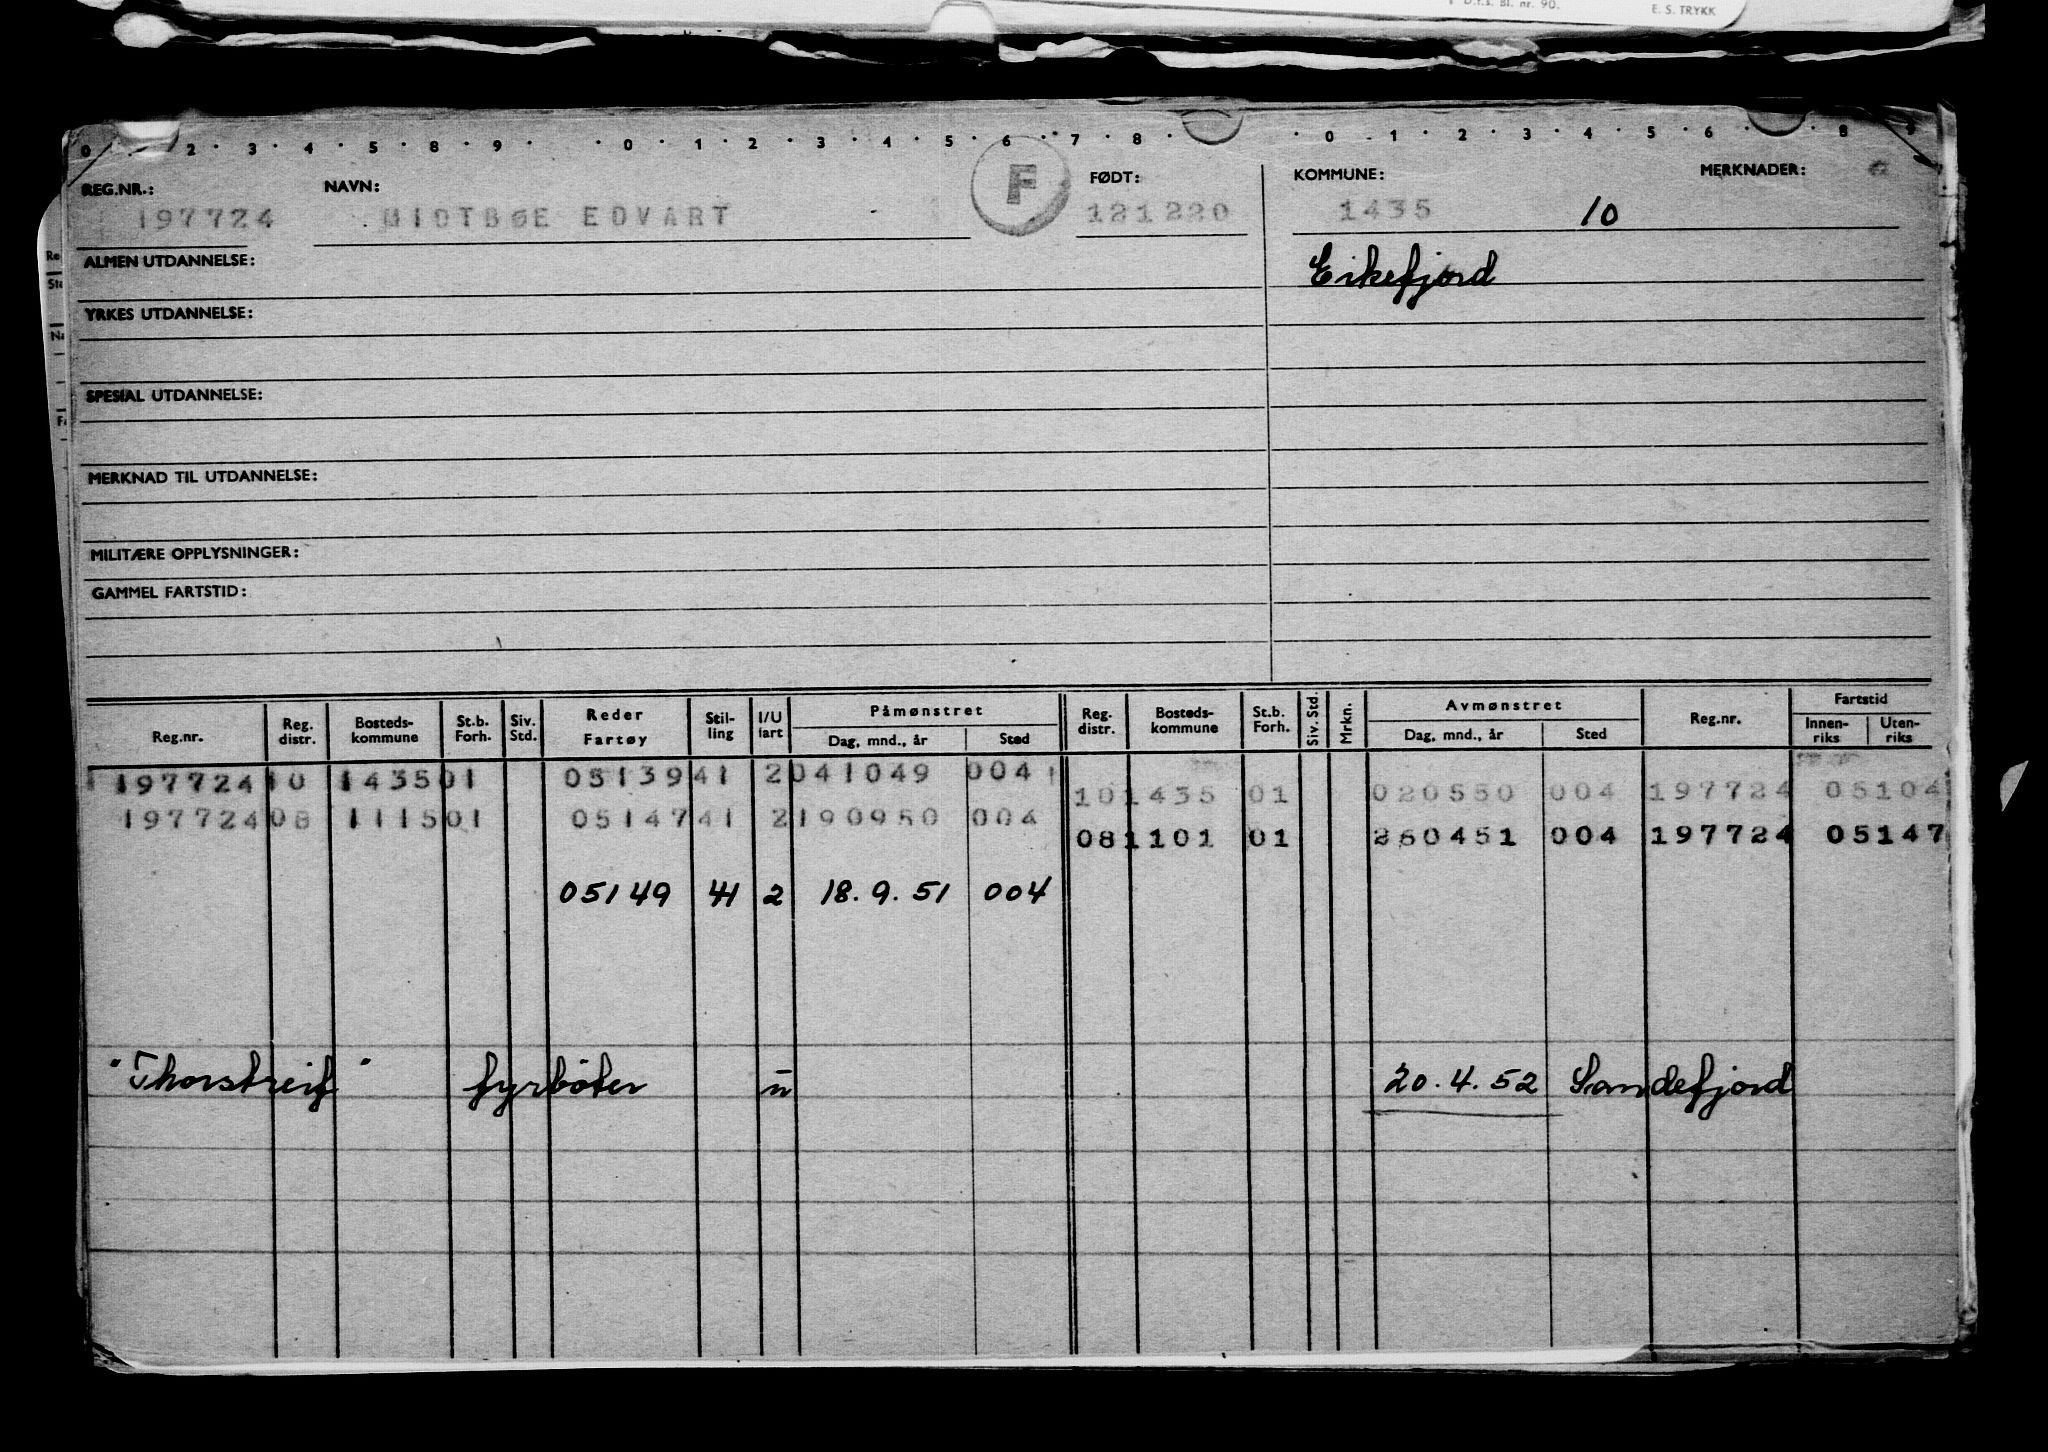 D.f.s. Bl. nr. 90. E. S. TRYKK
0 · 2 · 3 · 4 · 5 · 8 · 9 · · 0 · 1 · 2 · 3 · 4 · 5 · 6 · 7 · 8 · · 0 · 1 · 2 · 3 · 4 · 5 · 6 · 8 · 9
REG.NR.: NAVN: F FØDT: KOMMUNE: MERKNADER:
197724 MIDTBØE EDVART 121220 1435 10
ALMEN UTDANNELSE: Eikefjord
YRKES UTDANNELSE:
SPESIAL UTDANNELSE:
MERKNAD TIL UTDANNELSE:
MILITÆRE OPPLYSNINGER:
GAMMEL FARTSTID:
Reg.nr. Reg. distr. Bosteds-kommune St.b. Forh. Siv. Std. Reder Fartøy Stil-ling I/U fart Påmønstret Dag, mnd., år Sted Reg. distr. Bosteds-kommune St.b. Forh. Siv. Std. Mrkn. Avmønstret Dag, mnd., år Sted Reg.nr. Fartstid Innen-riks Uten-riks
197724 10 1435 01 05139 41 2 041049 004 10 1435 01 020550 004 197724 05104
197724 08 1115 01 05147 41 2 190950 004 08 1101 01 260451 004 197724 05147
05149 41 2 18.9.51 004
"Thorstreif" fyrbøter u 20.4.52 Sandefjord